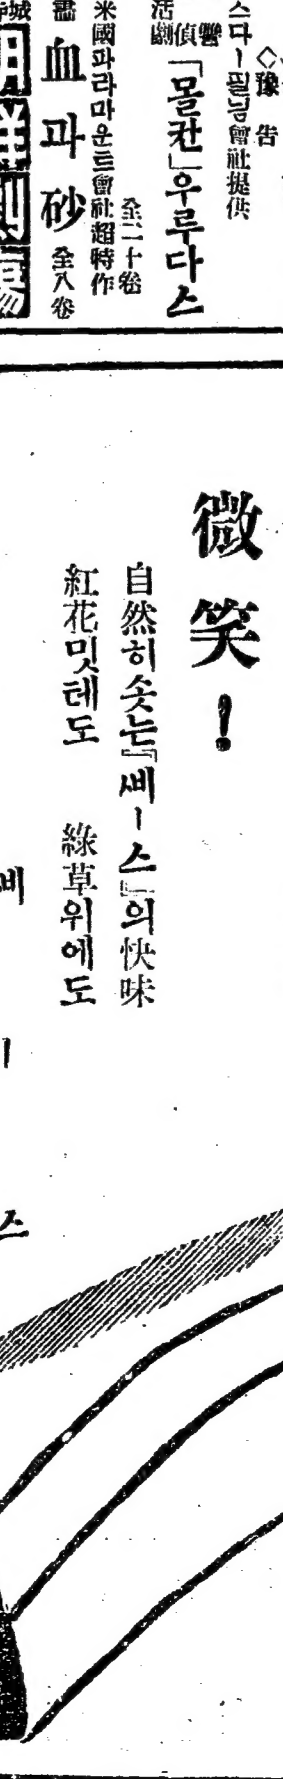 ◇豫告
스다ー필님會社提供
偵
活劇
「몰칸」우루다스
全二十卷
米國파라마운트會社超特作
血과砂 全八卷
微笑!
自然히솟는『쎄ー스』의快味
紅花밋테도 綠草위에도
쎄
ー
스